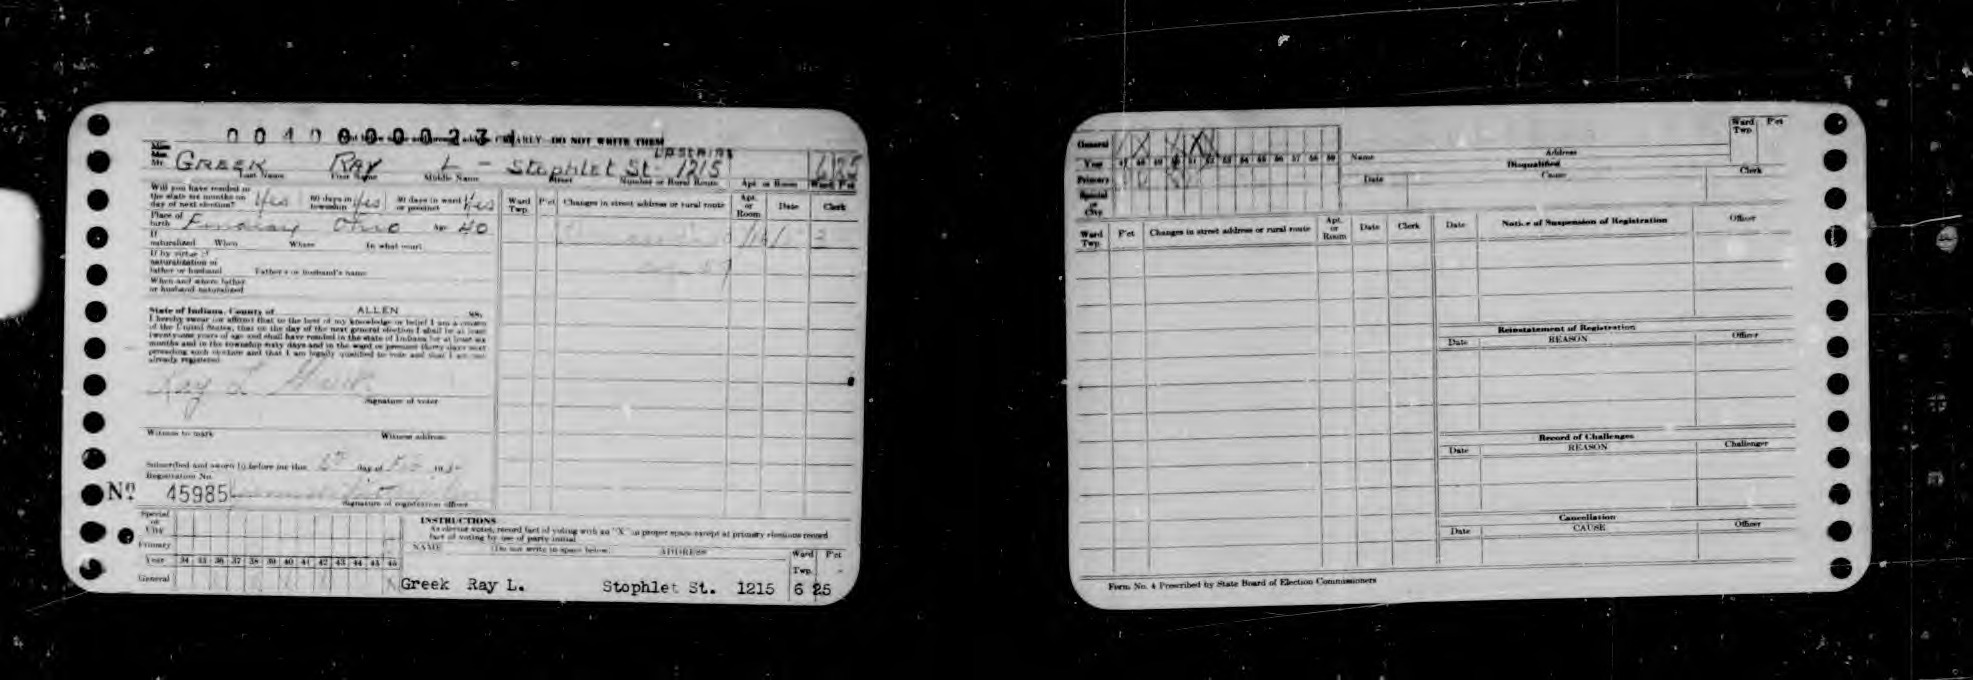 0040000023
CLEARLY DO NOT WRITE THEM
UPSTAIRS
Mr. GREEK RAY L - Stophlet St 1215 6 25
Last Name First Name Middle Name Street Number or Rural Route Apt. or Room Ward P'ct
Will you have resided in
the state six months on
day of next election? Yes 60 days in township Yes 30 days in ward or precinct Yes
Place of birth Findlay Ohio Age 40
If naturalized When Where In what court
If by virtue of
naturalization of
father or husband Father's or husband's name
When and where father
or husband naturalized
State of Indiana, County of ALLEN ss.
I hereby swear (or affirm) that to the best of my knowledge or belief I am a citizen
of the United States, that on the day of the next general election I shall be at least
twenty-one years of age and shall have resided in the state of Indiana for at least six
months and in the township sixty days and in the ward or precinct thirty days next
preceding such election and that I am legally qualified to vote and that I am not
already registered.
Ray L Greek
Signature of voter
Witness to mark Witness address
Subscribed and sworn to before me this day of 19
Registration No.
No 45985
Signature of registration officer
Ward Twp. P'ct Changes in street address or rural route Apt. or Room Date Clerk
Special or City
Primary
Year 34 35 36 37 38 39 40 41 42 43 44 45 46
General
INSTRUCTIONS
As elector votes, record fact of voting with an "X" in proper space except at primary elections record
fact of voting by use of party initial
NAME (Do not write in space below) ADDRESS Ward Twp. P'ct
Greek Ray L. Stophlet St. 1215 6 25
General
Year 47 48 49 50 51 52 53 54 55 56 57 58 59
Primary
Special or City
Ward Twp. P'ct
Name Address
Disqualified
Date Cause Clerk
Ward Twp. P'ct Changes in street address or rural route Apt. or Room Date Clerk
Date Notice of Suspension of Registration Officer
Reinstatement of Registration
Date REASON Officer
Record of Challenges
Date REASON Challenger
Cancellation
Date CAUSE Officer
Form No. 4 Prescribed by State Board of Election Commissioners